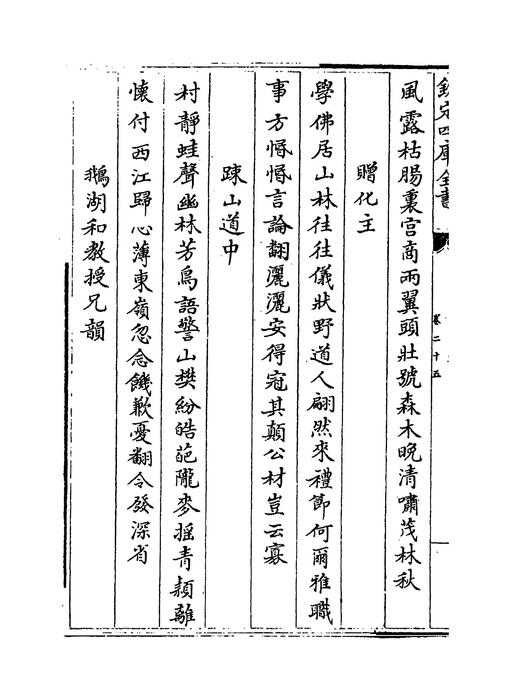 欽定四庫全書
卷二十五
風露枯腸裏宫商兩翼頭壯號森木晚清嘯茂林秋
贈化主
學佛居山林往往儀狀野道人翩然來禮節何爾雅職
事方惽惽言論翻灑灑安得冠其顛公材豈云寡
踈山道中
村靜蛙聲幽林芳鳥語警山樊紛皓葩隴麥揺青頴離
懷付西江歸心薄東嶺忽念饑歉憂翻令發深省
鵝湖和教授兄韻